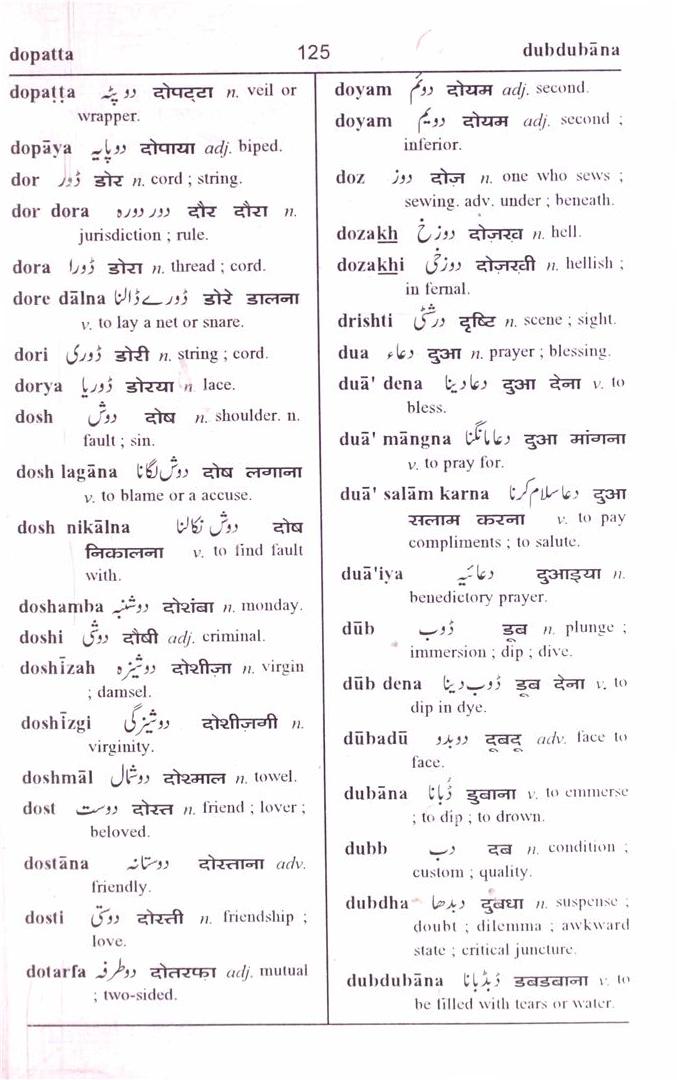 dopatta 125 dubdubāna
dopaṭṭa دو پٹہ दोपट्टा n. veil or
wrapper.
dopāya دوپایہ दोपाया adj. biped.
dor ڈور डोर n. cord ; string.
dor dora دور دورہ दौर दौरा n.
jurisdiction ; rule.
dora ڈورا डोरा n. thread ; cord.
dore dālna ڈورے ڈالنا डोरे डालना
v. to lay a net or snare.
dori ڈوری डोरी n. string ; cord.
dorya ڈوریا डोरया n. lace.
dosh دوش दोष n. shoulder. n.
fault ; sin.
dosh lagāna دوش لگانا दोष लगाना
v. to blame or a accuse.
dosh nikālna دوش نکالنا दोष
निकालना v. to find fault
with.
doshamba دوشنبہ दोशंबा n. monday.
doshi دوشی दौषी adj. criminal.
doshīzah دوشیزہ दोशीज़ा n. virgin
; damsel.
doshīzgi دوشیزگی दोशीज़गी n.
virginity.
doshmāl دوشمال दोश्माल n. towel.
dost دوست दोस्त n. friend ; lover ;
beloved.
dostāna دوستانہ दोस्ताना adv.
friendly.
dosti دوستی दोस्ती n. friendship ;
love.
dotarfa دوطرفہ दोतरफ़ा adj. mutual
; two-sided.
doyam دوئم दोयम adj. second.
doyam دویم दोयम adj. second ;
inferior.
doz دوز दोज़ n. one who sews ;
sewing. adv. under ; beneath.
dozakh دوزخ दोज़ख़ n. hell.
dozakhi دوزخی दोज़ख़ी n. hellish ;
in fernal.
drishti درشٹی दृष्टि n. scene ; sight.
dua دعاء दुआ n. prayer ; blessing.
duā' dena دعا دینا दुआ देना v. to
bless.
duā' māngna دعا مانگنا दुआ मांगना
v. to pray for.
duā' salām karna دعا سلام کرنا दुआ
सलाम करना v. to pay
compliments ; to salute.
duā'iya دعائیہ दुआइया n.
benedictory prayer.
dūb ڈوب डूब n. plunge ;
immersion ; dip ; dive.
dūb dena ڈوب دینا डूब देना v. to
dip in dye.
dūbadū دوبدو दूबदू adv. face to
face.
dubāna ڈُبانا डुबाना v. to emmerse
; to dip ; to drown.
dubb دب दब n. condition ;
custom ; quality.
dubdha دبدھا दुबधा n. suspense ;
doubt ; dilemma ; awkward
state ; critical juncture.
dubdubāna ڈبڈبانا डबडबाना v. to
be filled with tears or water.